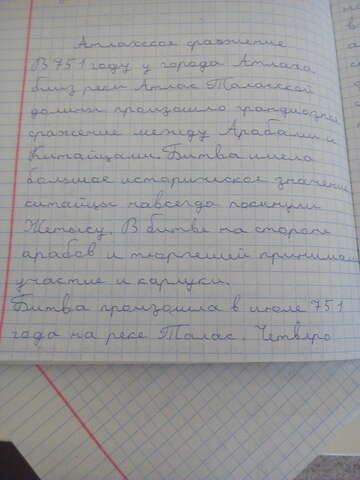 Атлахское сражение
В 751 году у города Атлаха
близ реки Атлах Таласской
долины произошло грандиозное
сражение между Арабами и
Китайцами. Битва имела
большое историческое значение
китайцы навсегда покинули
Жетысу. В битве на стороне
арабов и тюргешей принимали
участие и карлуки.
Битва произошла в июле 751
года на реке Талас. Четверо